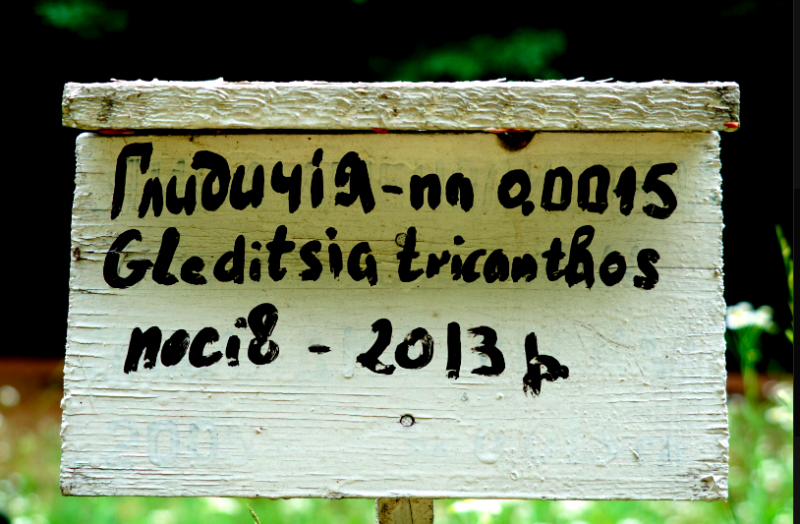 Гледичія-пл 0.0015
Gleditsia tricanthos
посів - 2013 р.